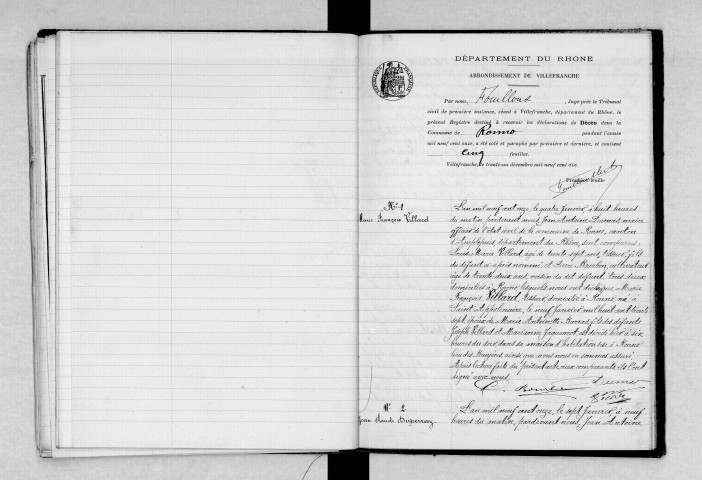 DÉPARTEMENT DU RHONE
ARRONDISSEMENT DE VILLEFRANCHE
RÉPUBLIQUE FRANÇAISE
Par nous, Fouilloud, Juge près le Tribunal
civil de première instance, séant à Villefranche, département du Rhône, le
présent Registre destiné à recevoir les déclarations de Décès dans la
Commune de Ronno pendant l'année
mil neuf cent onze, a été coté et paraphé par première et dernière, et contient
cinq feuilles.
Villefranche, le trente-un décembre mil neuf cent dix.
Première feuille
N° 1
Marie François Villard
L'an mil neuf cent onze, le quatre Janvier, à huit heures
du matin, pardevant nous, Jean Antoine Dumas, maire
officier de l'état civil de la commune de Ronno, canton
d'Amplepuis, département du Rhône, sont comparus
Louis Marie Villard, âgé de trente sept ans, tisseur, fils
du défunt ci après nommé, et
âgé de trente deux ans, voisin du dit défunt, tous deux
domiciliés à Ronno, lesquels nous ont déclaré que Marie
François Villard, tisseur, domicilié à Ronno, né à
Saint Appolinaire, le neuf Janvier mil huit cent trente
sept, époux de Marie Antoinette fils des défunts
Joseph Villard et Marianne est décédé hier à six
heures du soir dans sa maison d'habitation sise à Ronno
lieu des Bruyères ainsi que nous nous en sommes assuré.
Après lecture faite du présent acte aux comparants ils l'ont
signé avec nous.
Dumas
N° 2
Jean Claude
L'an mil neuf cent onze, le sept Janvier, à neuf
heures du matin, pardevant nous, Jean Antoine